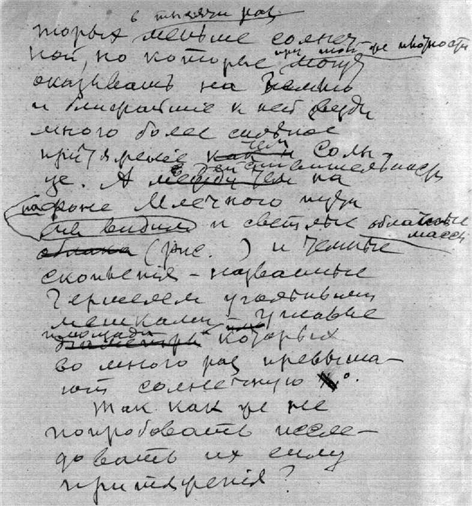 в тысячи раз
торых меньше солнеч-
ной, но которые могут при той же плотности
оказывать на Землю
и ближайшие к ней звезды
много более сильное
притяжение чем Солн-
це. А в действительности на
на фоне Млечного пути
мы видим и светлые облачные массы
облака (рис. ) и темные
скопления – названные
Гершелем угольными
мешками –
площади которых
во много раз превыша-
ют солнечную.
Так как же не
попробовать иссле-
довать их силу
притяжения?